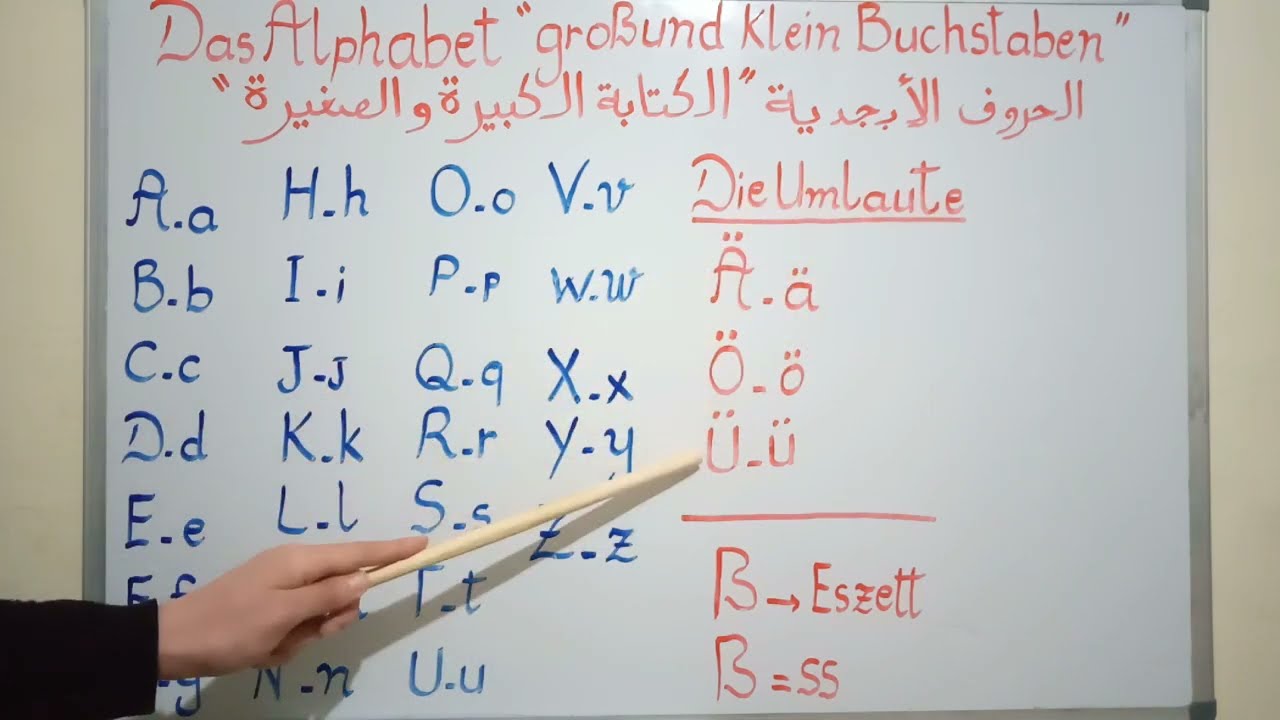 Das Alphabet "großund Klein Buchstaben"
الحروف الأبجدية "الكتابة الكبيرة والصغيرة"
A-a
B-b
C-c
D-d
E-e
F-f
H-h
I-i
J-j
K-k
L-l
N-n
O-o
P-p
Q-q
R-r
S-s
T-t
U-u
V-v
W-w
X-x
Y-y
Z-z
Die Umlaute
Ä-ä
Ö-ö
Ü-ü
ß→Eszett
ß=ss